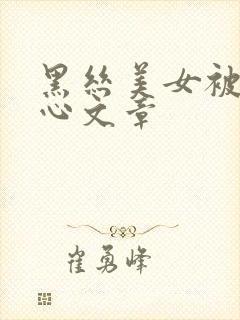 黑丝美女被
心文章
崔勇峰